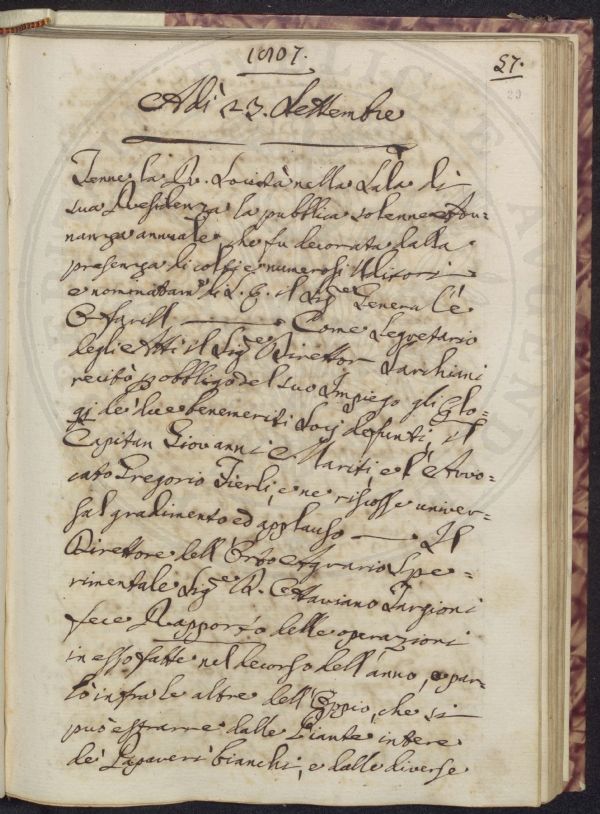 1807.
57.
29
Adì 23. Settembre
Tenne la R. Società nella Sala di
sua Residenza la pubblica solenne Adu-
nanza annuale, che fu decorata dalla
presenza di colti, e numerosi Uditori
e nominatam.e di S. E. il Sig.e General
Come Segretario
degli Atti il Sig.e Direttor Sarchiani
recitò p obbligo del suo Impiego gli Elo=
gi de' due benemeriti Socj defunti, il
Capitan Giovanni Mariti, e l'Avvo=
cato Gregorio Fierli, e ne riscosse univer-
sal gradimento ed applauso — Il
Direttore dell'Orto Agrario Spe=
rimentale Sig.e D. Ottaviano Targioni
fece Rapporto delle operazioni
in esso fatte nel decorso dell'anno, e par-
lò infra le altre dell'Oppio, che si
può estrarre dalle Piante intere
de' Papaveri bianchi, e dalle diverse